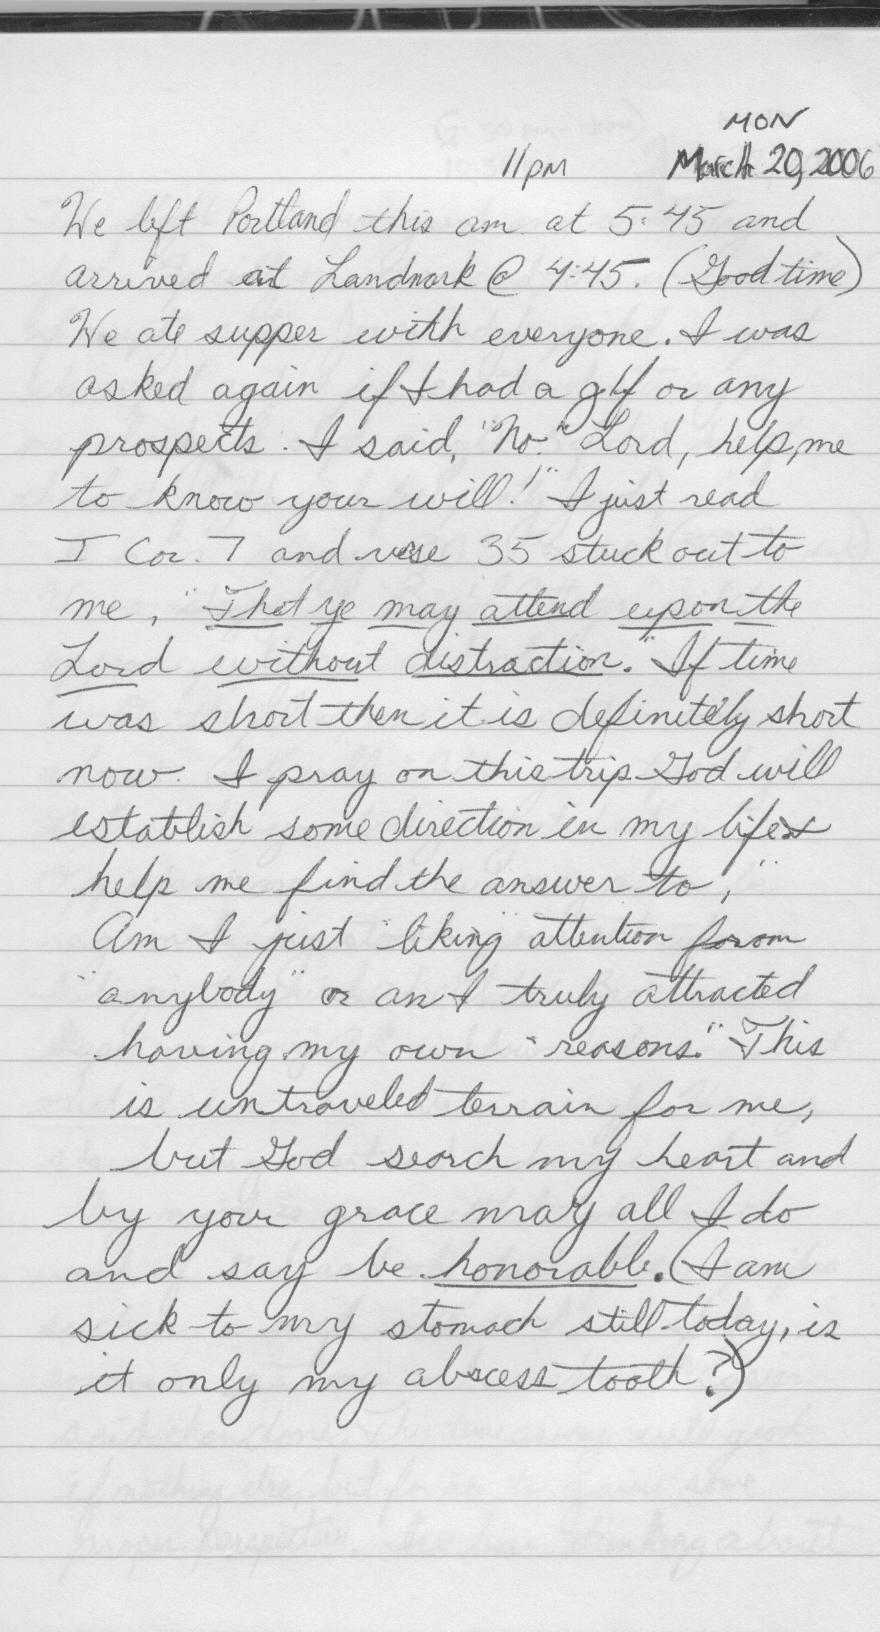 MON
11pm March 20, 2006
We left Portland this am at 5:45 and
arrived at Landmark @ 4:45. (Good time)
We ate supper with everyone. I was
asked again if I had a glf or any
prospects. I said, "No." Lord, help me
to know your will!" I just read
I Cor. 7 and verse 35 stuck out to
me, "That ye may attend upon the
Lord without distraction." If time
was short then it is definitely short
now. I pray on this trip God will
establish some direction in my life &
help me find the answer to, "
Am I just "liking" attention from
"anybody" or am I truly attracted
having my own "reasons." This
is untraveled terrain for me,
but God search my heart and
by your grace may all I do
and say be honorable. (I am
sick to my stomach still today, is
it only my abscess tooth?)